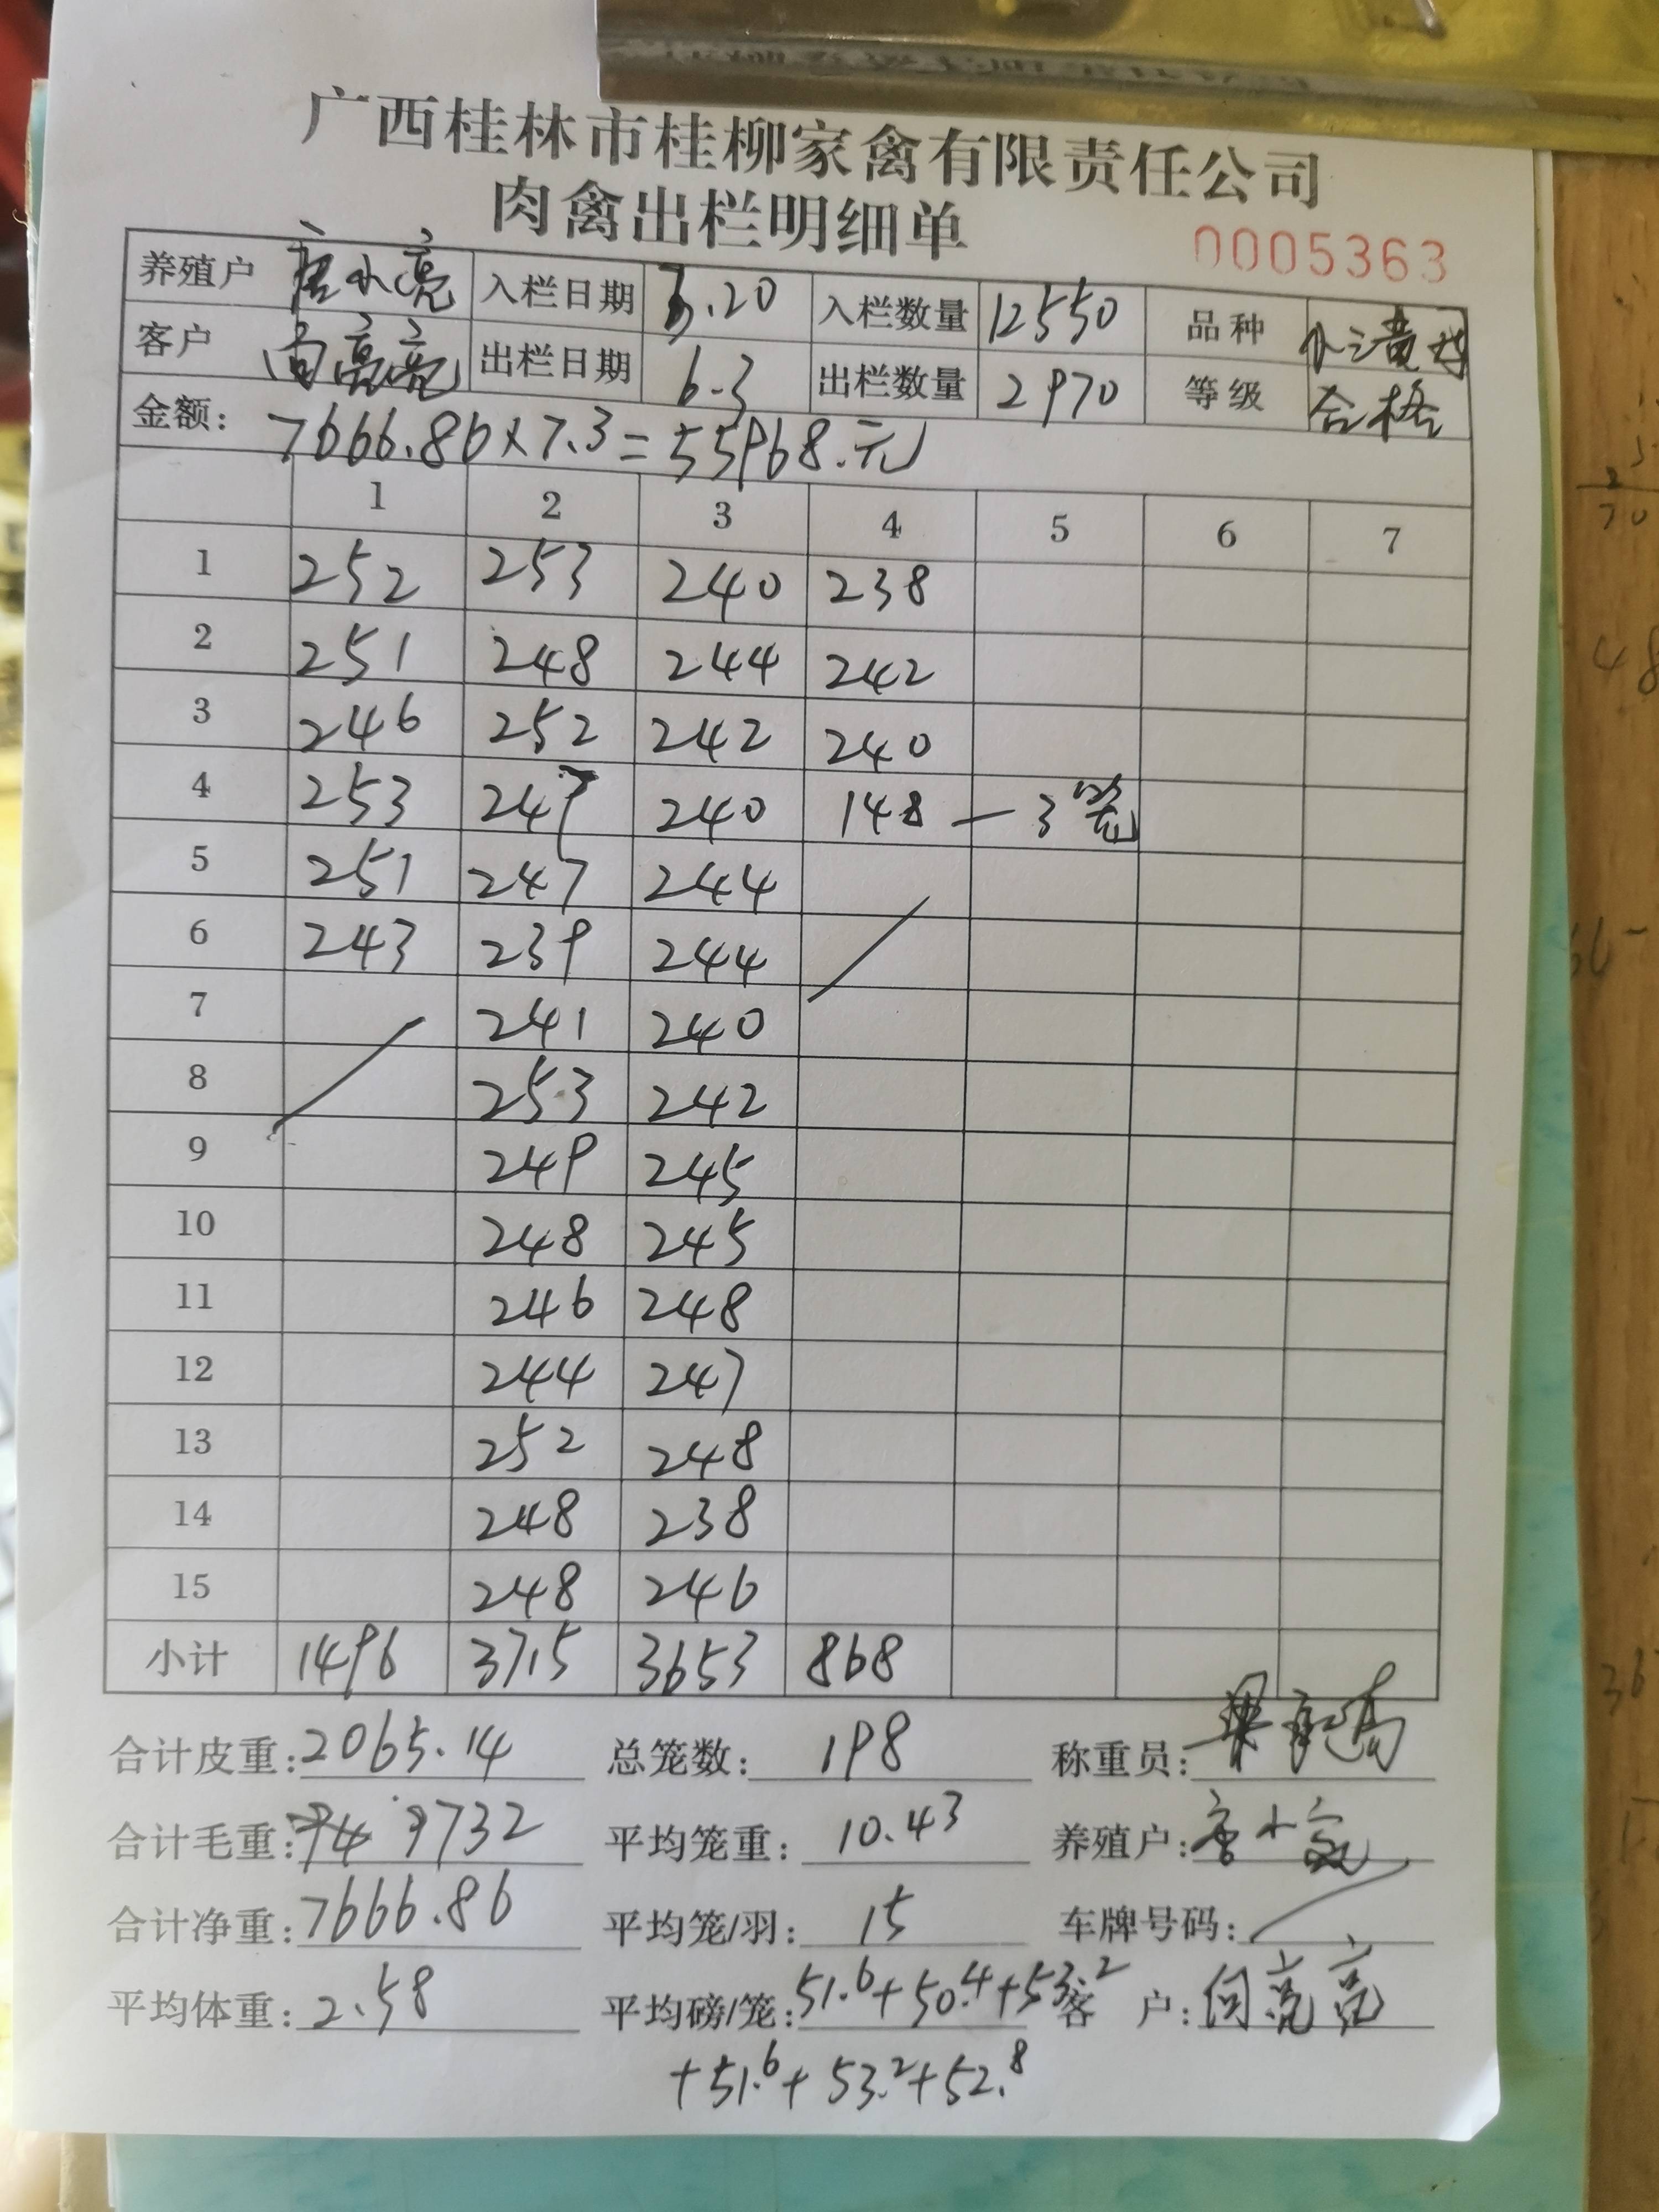 广西桂林市桂柳家禽有限责任公司
肉禽出栏明细单
0005363
养殖户 唐小亮 入栏日期 3.20 入栏数量 12550 品种
客户 向亮亮 出栏日期 6.3 出栏数量 2970 等级 合格
金额: 7666.86×7.3=55968.元
1 2 3 4 5 6 7
1 252 253 240 238
2 251 248 244 242
3 246 252 242 240
4 253 247 240 148 — 3笼
5 251 247 244
6 243 239 244
7 241 240
8 253 242
9 249 245
10 248 245
11 246 248
12 244 247
13 252 248
14 248 238
15 248 246
小计 1496 3715 3653 868
合计皮重: 2065.14 总笼数: 198 称重员:
合计毛重: 9732 平均笼重: 10.43 养殖户: 唐小亮
合计净重: 7666.86 平均笼/羽: 15 车牌号码:
平均体重: 2.58 平均磅/笼: 51.6+50.4+53.2 客 户: 向亮亮
+51.6+53.2+52.8